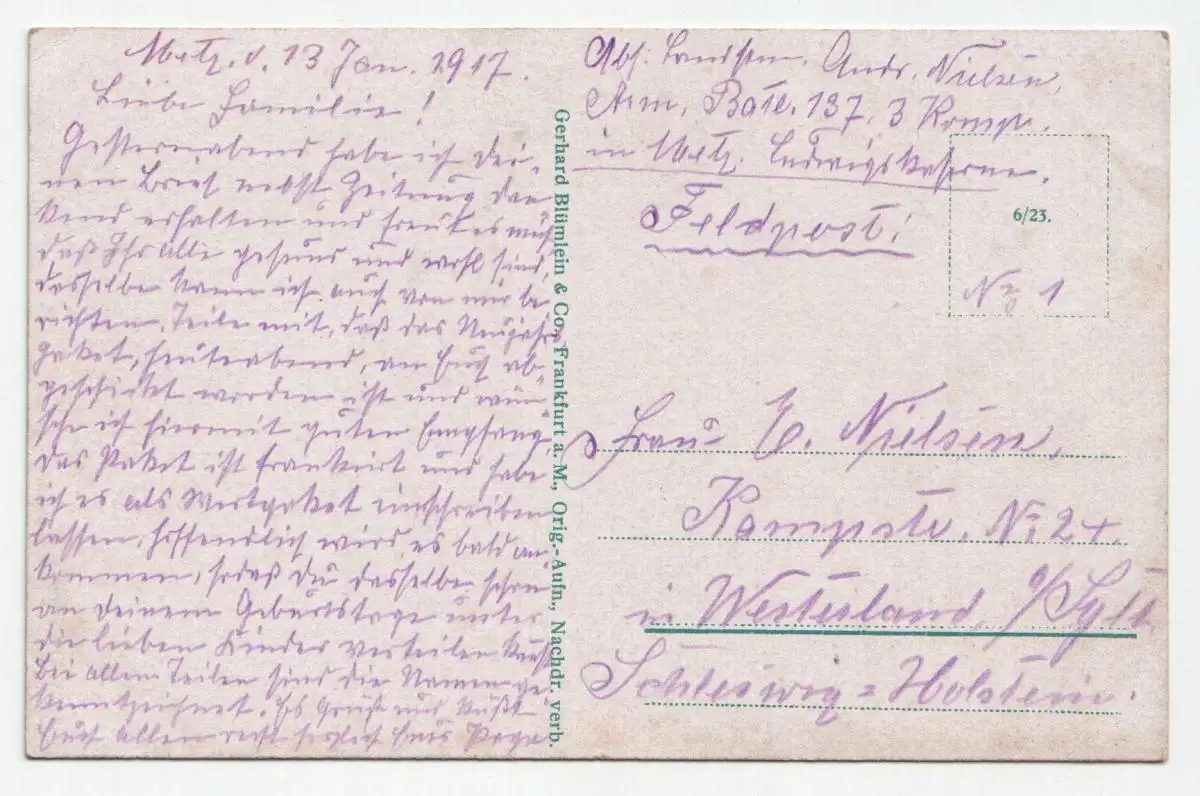 Metz. d. 13 Jan. 1917.
Liebe Familie!
Gesternabend habe ich dei-
nen Brief nebst Zeitung dan-
kend erhalten und freut es mich
daß Ihr Alle gesund und wohl sind,
dasselbe kann ich auch von mir be-
richten. Teile mit, daß das Neujahrs
paket, heuteabend, an Euch ab-
geschickt worden ist und wün-
sche ich hiermit guten Empfang
das Paket ist frankirt und habe
ich es als Wertpaket einschreiben
lassen, hoffendlich wird es bald an-
kommen, sodaß du dasselbe schon
an deinem Geburtstage unter
die lieben Kinder verteilen kanst
Bei allen Teilen sind die Namen ge-
kenntzeichnet. Es Grüßt und Küßt
Euch allen recht herzlich Euer Papa
Gerhard Blümlein & Co., Frankfurt a. M., Orig.-Aufn., Nachdr. verb.
Abs. Landstm. Andr. Nielsen,
Arm. Batl. 137, 3 Komp.
in Metz. Ludwigskaserne.
Feldpost!
6/23.
No 1
Frau E. Nielsen,
Kampstr. No 24.
in Westerland, a/Sylt
Schleswig=Holstein.